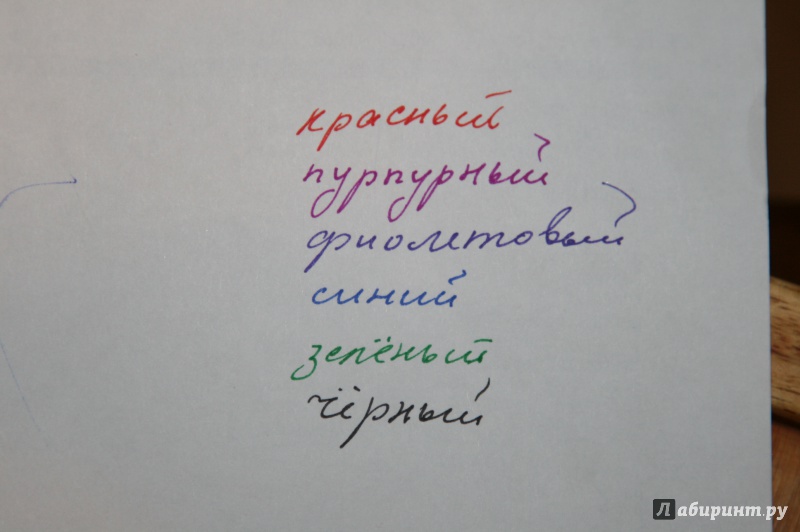 красный
пурпурный
фиолетовый
синий
зелёный
чёрный
Лабиринт.ру